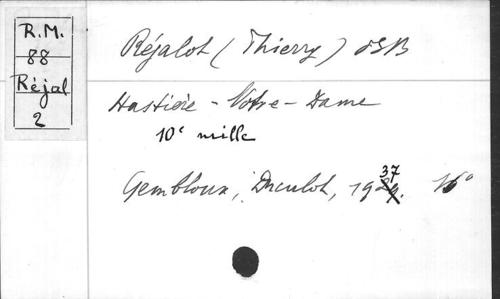 R.M.
88
Réjal
2
Réjalot (Thierry) OSB
Hastière - Notre - Dame
10e mille
Gembloux, Duculot, 1937. 16°